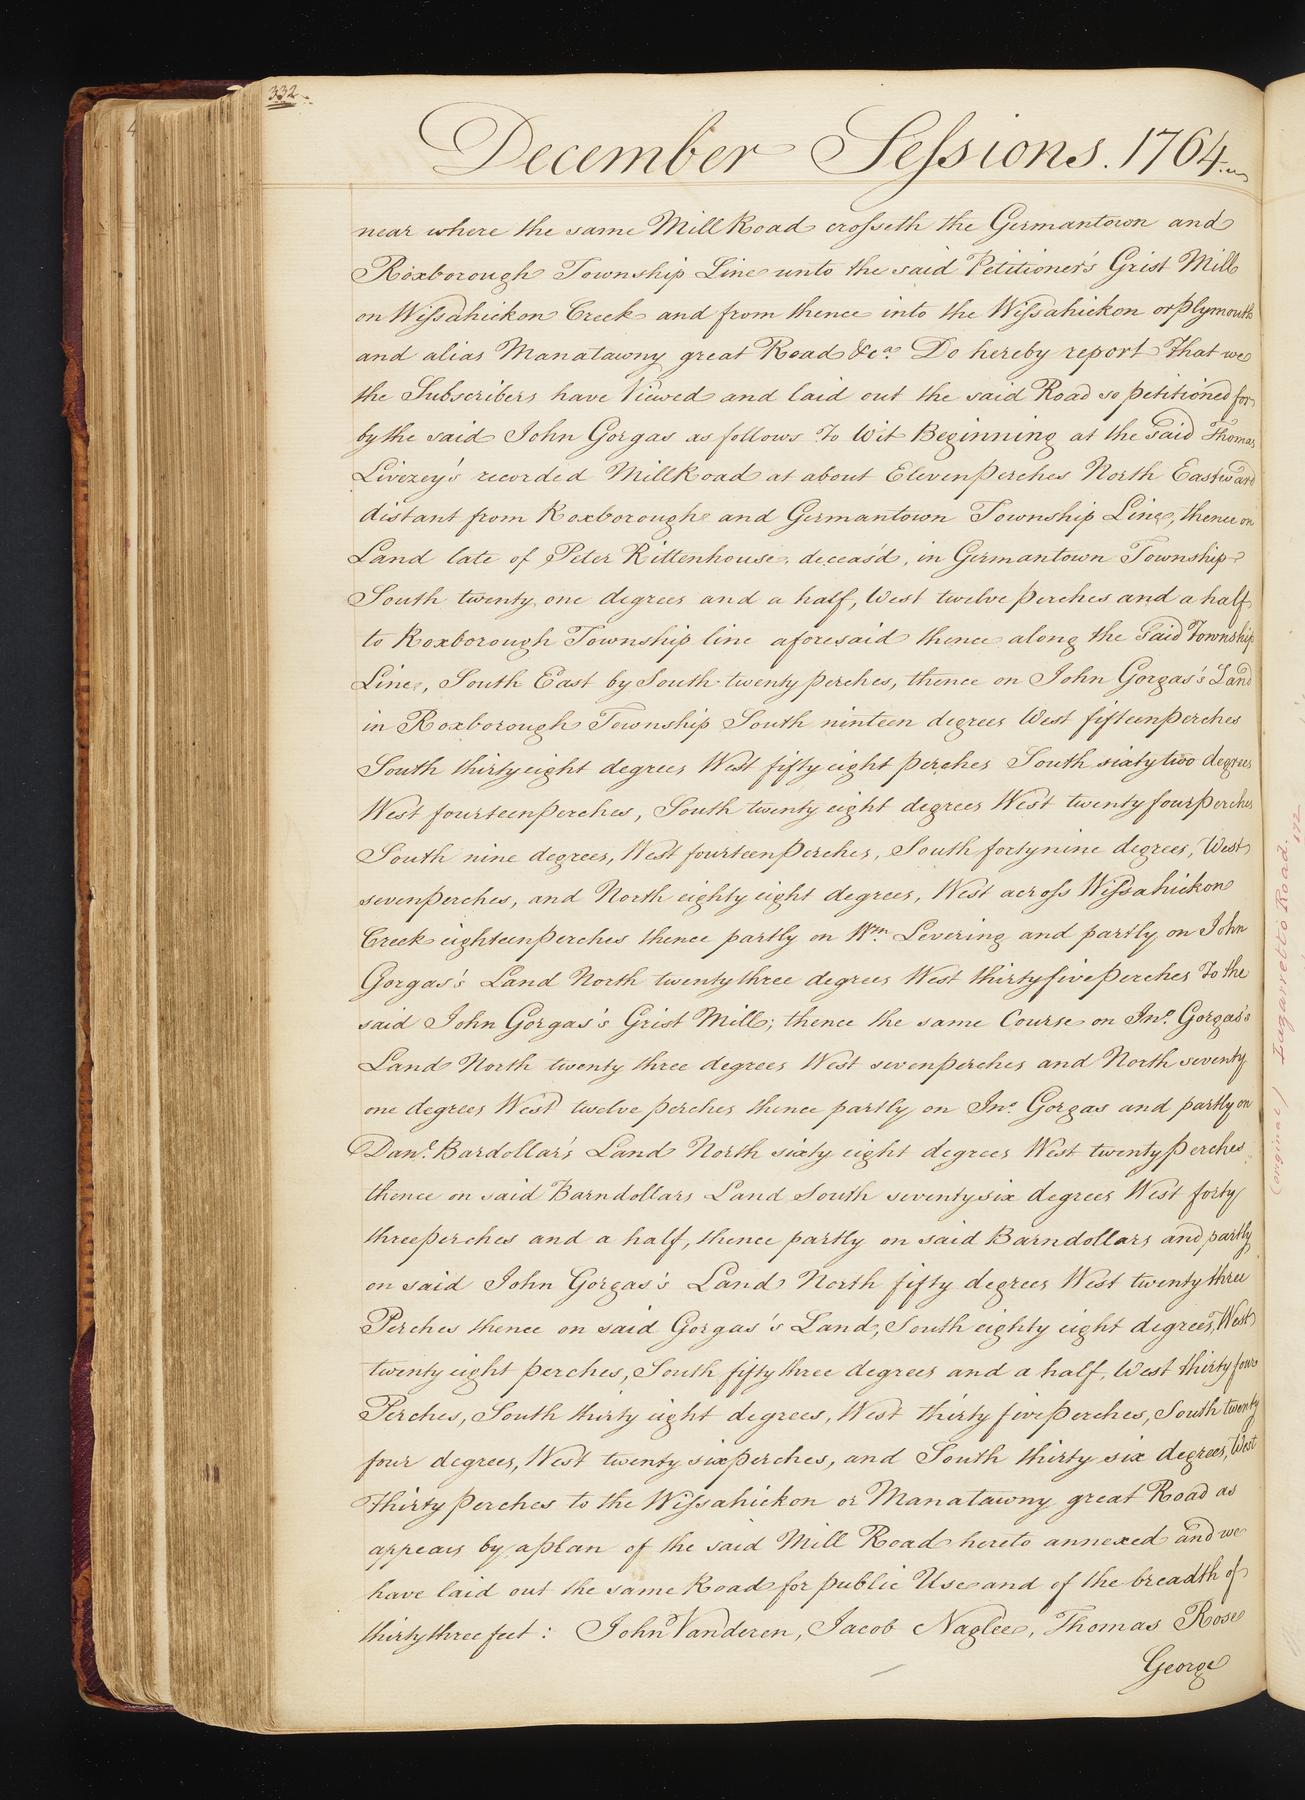 332
December Sessions. 1764.
near where the same Mill Road crosseth the Germantown and
Roxborough Township Line unto the said Petitioner's Grist Mill
on Wissahickon Creek and from thence into the Wissahickon or plymouth
and alias Manatawny great Road &ca. Do hereby report That we
the Subscribers have Viewed and laid out the said Road so petitioned for
by the said John Gorgas as follows To Wit Beginning at the said Thomas
Livezey's recorded Mill Road at about Eleven perches North Eastward
distant from Roxborough and Germantown Township Line, thence on
Land late of Peter Rittenhouse deceas'd, in Germantown Township
South twenty one degrees and a half, West twelve perches and a half
to Roxborough Township line aforesaid thence along the said Township
Line, South East by South twenty perches, thence on John Gorgas's Land
in Roxborough Township South ninteen degrees West fifteen perches
South thirty eight degrees West fifty eight perches South sixty two degrees
West fourteen perches, South twenty eight degrees West twenty four perches
South nine degrees, West fourteen perches, South forty nine degrees, West
seven perches, and North eighty eight degrees, West across Wissahickon
Creek eighteen perches thence partly on Wm. Levering and partly on John
Gorgas's Land North twenty three degrees West thirty five perches To the
said John Gorgas's Grist Mill; thence the same Course on Jno. Gorgas's
Land North twenty three degrees West seven perches and North seventy
one degrees West twelve perches thence partly on Jno. Gorgas and partly on
Danl. Bardollar's Land North sixty eight degrees West twenty perches
thence on said Barndollars Land South seventy six degrees West forty
three perches and a half, thence partly on said Barndollars and partly
on said John Gorgas's Land North fifty degrees West twenty three
Perches thence on said Gorgas's Land, South eighty eight degrees, West
twenty eight perches, South fifty three degrees and a half, West thirty four
Perches, South thirty eight degrees, West thirty five perches, South twenty
four degrees, West twenty six perches, and South thirty six degrees, West
Thirty perches to the Wissahickon or Manatawny great Road as
appears by a plan of the said Mill Road hereto annexed and we
have laid out the same Road for public Use and of the breadth of
thirty three feet: John Vanderen, Jacob Naglee, Thomas Rose
George
(original) Lazarretto Road.
172